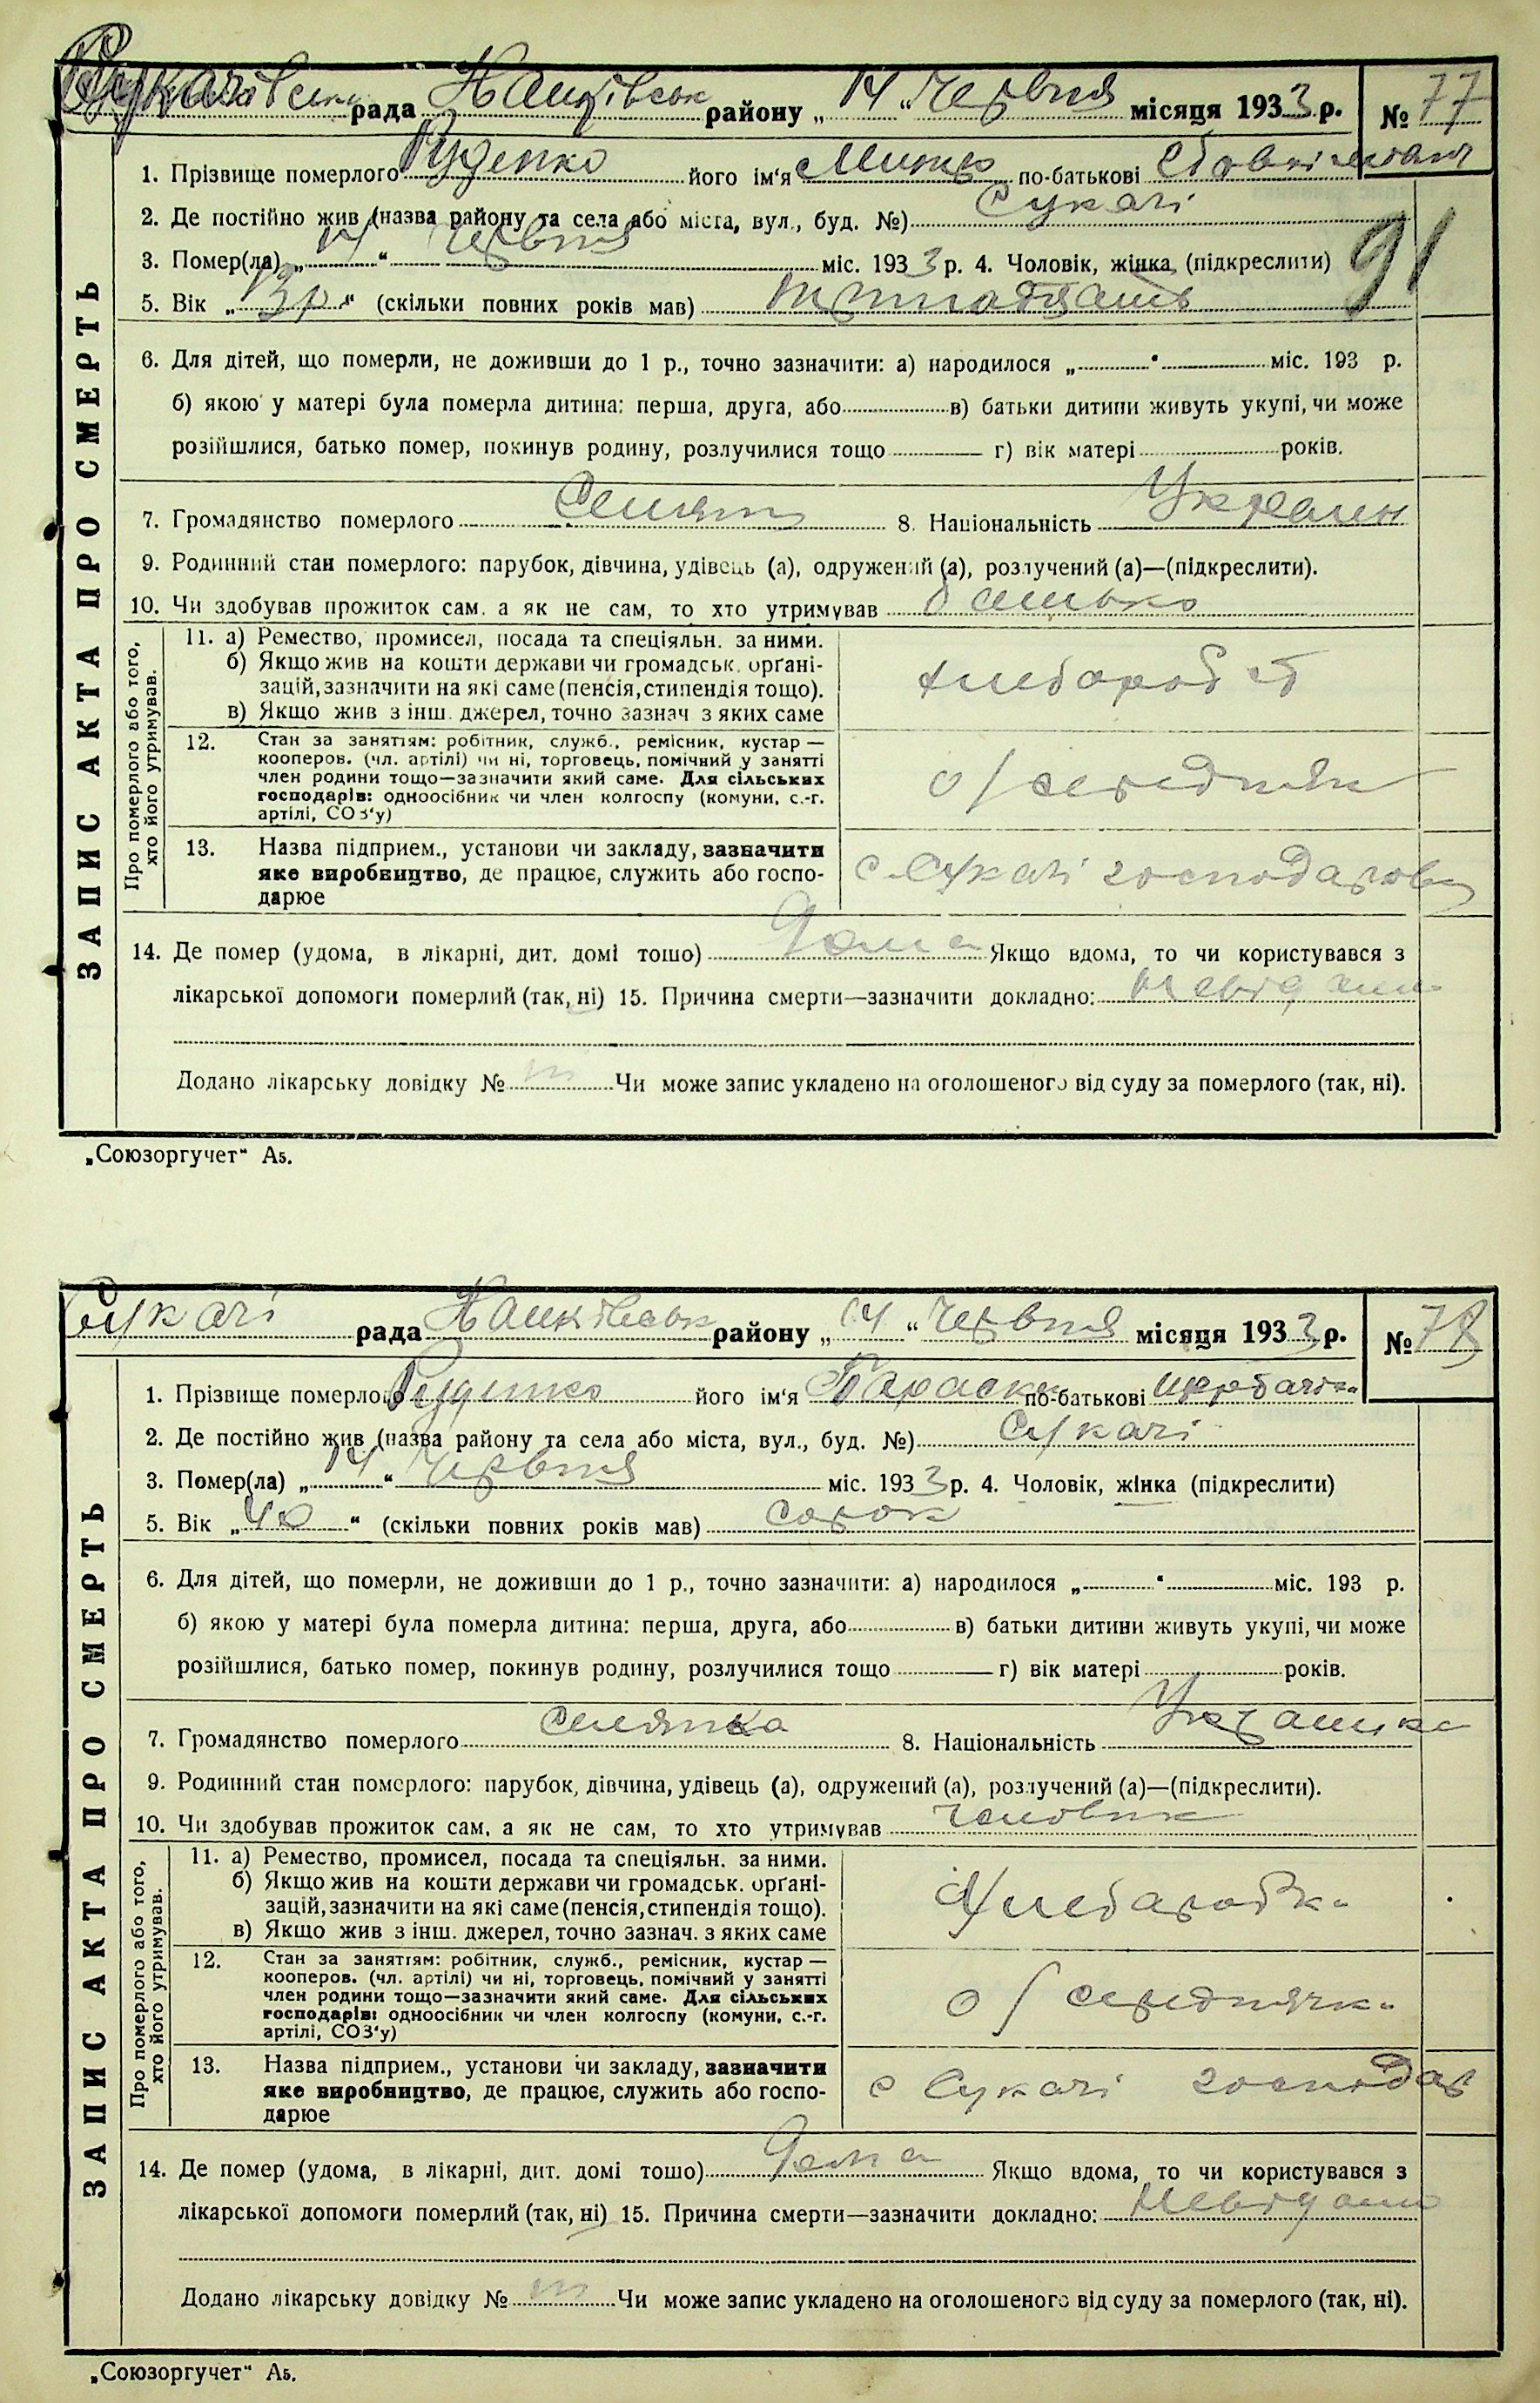 рада Іванківськ району „ 14 “ Червня місяця 1933 р. № 77
1. Прізвище померлого Руденко його ім‘я по-батькові
2. Де постійно жив (назва району та села або міста, вул., буд. №) Сукачі
91
3. Помер(ла) „ 14 “ Червня міс. 1933 р. 4. Чоловік, жінка (підкреслити)
5. Вік „ 13 р “ (скільки повних років мав) тринадцать
6. Для дітей, що померли, не доживши до 1 р., точно зазначити: а) народилося „ “ міс. 193 р.
б) якою у матері була померла дитина: перша, друга, або в) батьки дитини живуть укупі, чи може
розійшлися, батько помер, покинув родину, розлучилися тощо г) вік матері років.
7. Громадянство померлого Селян 8. Національність Украин
9. Родинний стан померлого: парубок, дівчина, удівець (а), одружений (а), розлучений (а)—(підкреслити).
10. Чи здобував прожиток сам, а як не сам, то хто утримував батько
ЗАПИС АКТА ПРО СМЕРТЬ
Про померлого або того,
хто його утримував.
11. а) Ремество, промисел, посада та спеціяльн. за ними.
б) Якщо жив на кошти держави чи громадськ. орґані-
зацій, зазначити на які саме (пенсія, стипендія тощо).
в) Якщо жив з інш. джерел, точно зазнач з яких саме
хлебороб
12. Стан за заняттям: робітник, служб., ремісник, кустар —
кооперов. (чл. артілі) чи ні, торговець, помічний у занятті
член родини тощо—зазначити який саме. Для сільських
господарів: одноосібник чи член колгоспу (комуни, с.-г.
артілі, СОЗ‘у)
о/середняк
13. Назва підприєм., установи чи закладу, зазначити
яке виробництво, де працює, служить або госпо-
дарює
с Сукачі
14. Де помер (удома, в лікарні, дит. домі тошо) Дома Якщо вдома, то чи користувався з
лікарської допомоги померлий (так, ні) 15. Причина смерти—зазначити докладно:
Додано лікарську довідку № Чи може запис укладено на оголошеного від суду за померлого (так, ні).
„Союзоргучет“ А5.
Сукачі рада Іванківськ району „ 14 “ Червня місяця 1933 р. № 78
1. Прізвище померлого Руденко його ім‘я Параска по-батькові
2. Де постійно жив (назва району та села або міста, вул., буд. №) Сукачі
3. Помер(ла) „ 14 “ Червня міс. 1933 р. 4. Чоловік, жінка (підкреслити)
5. Вік „ 40 “ (скільки повних років мав) сорок
6. Для дітей, що померли, не доживши до 1 р., точно зазначити: а) народилося „ “ міс. 193 р.
б) якою у матері була померла дитина: перша, друга, або в) батьки дитини живуть укупі, чи може
розійшлися, батько помер, покинув родину, розлучилися тощо г) вік матері років.
7. Громадянство померлого селянка 8. Національність Украинка
9. Родинний стан померлого: парубок, дівчина, удівець (а), одружений (а), розлучений (а)—(підкреслити).
10. Чи здобував прожиток сам, а як не сам, то хто утримував человик
ЗАПИС АКТА ПРО СМЕРТЬ
Про померлого або того,
хто його утримував.
11. а) Ремество, промисел, посада та спеціяльн. за ними.
б) Якщо жив на кошти держави чи громадськ. орґані-
зацій, зазначити на які саме (пенсія, стипендія тощо).
в) Якщо жив з інш. джерел, точно зазнач. з яких саме
Хлеборобка
12. Стан за заняттям: робітник, служб., ремісник, кустар —
кооперов. (чл. артілі) чи ні, торговець, помічний у занятті
член родини тощо—зазначити який саме. Для сільських
господарів: одноосібник чи член колгоспу (комуни, с.-г.
артілі, СОЗ‘у)
о/середнячк
13. Назва підприєм., установи чи закладу, зазначити
яке виробництво, де працює, служить або госпо-
дарює
с Сукачі господар
14. Де помер (удома, в лікарні, дит. домі тошо) Дома Якщо вдома, то чи користувався з
лікарської допомоги померлий (так, ні) 15. Причина смерти—зазначити докладно: Невідомо
Додано лікарську довідку № Чи може запис укладено на оголошеного від суду за померлого (так, ні).
„Союзоргучет“ А5.